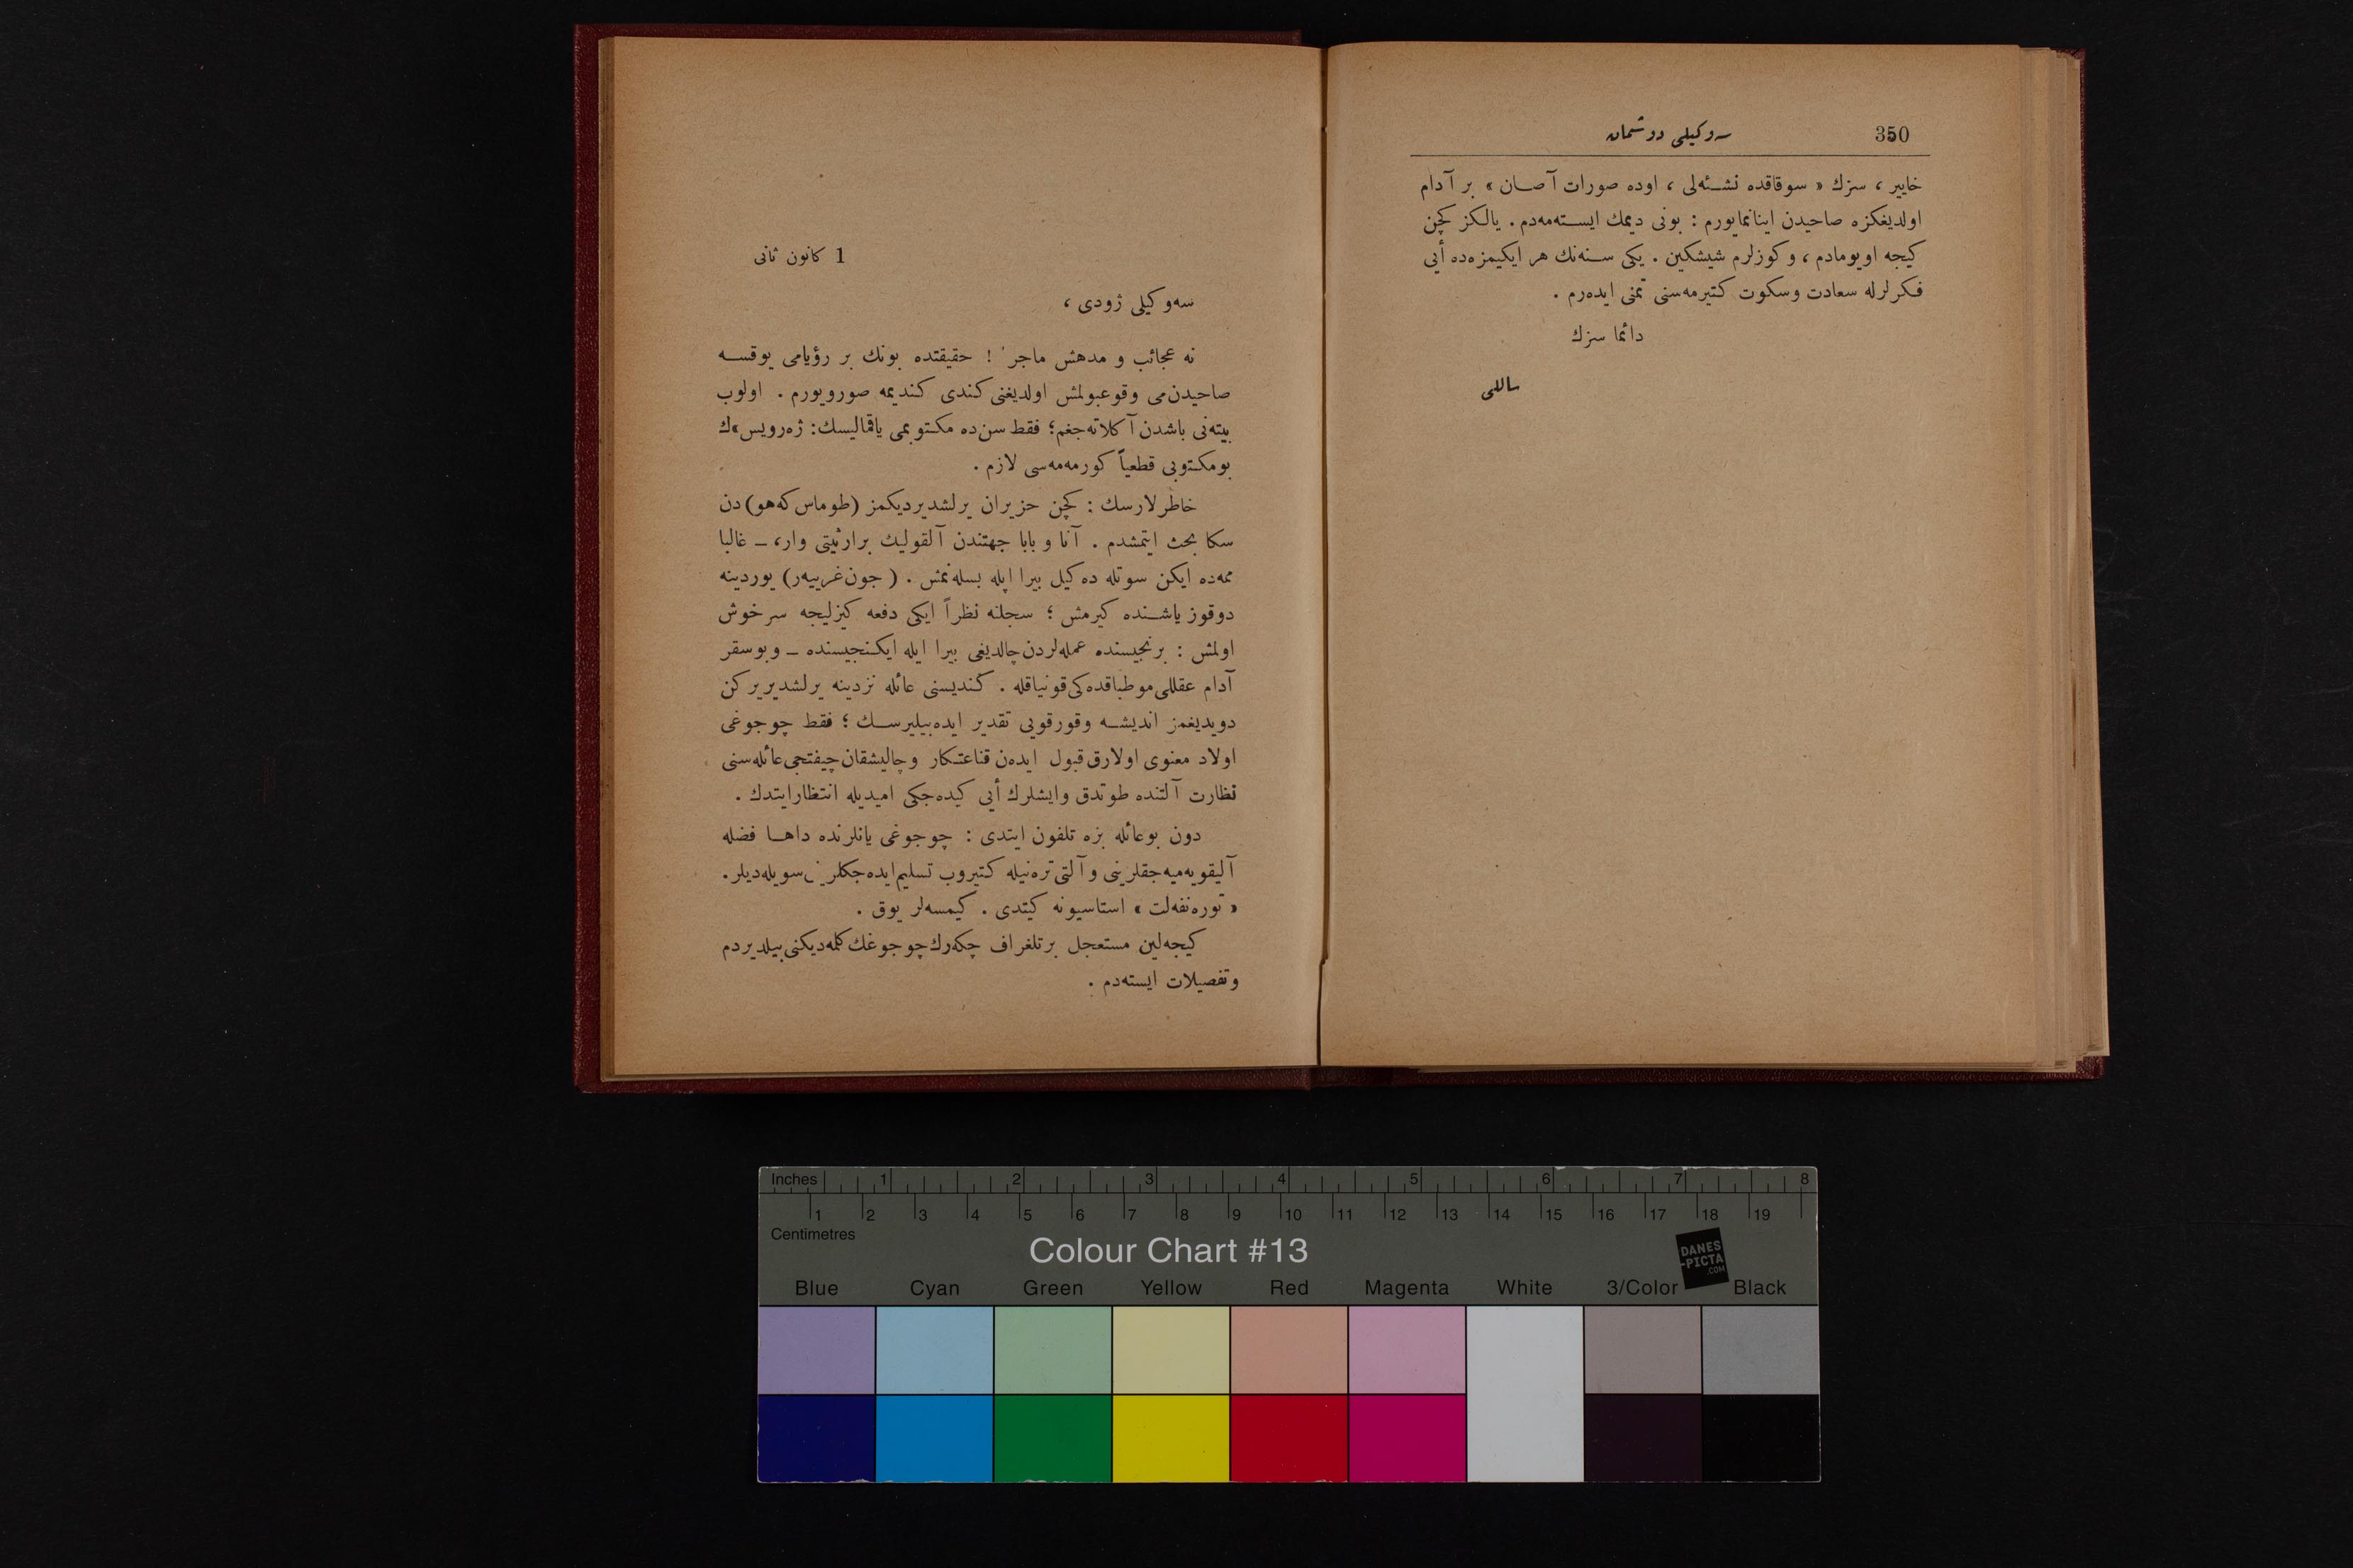 350
سه‌وكیلی دوشمان
خایير ، سزك « سوقاقده نشئه‌لی ، اوده صورات آصان » بر آدام
اولدیغكزه صاحیدن اینانمایورم : بونی دیمك ایسته‌مه‌دم . یالكز كچن
كیجه اویومادم ، و كوزلرم شیشكین . یكی سنه‌نك هر ایكیمزه‌ده أیی
فكرلرله سعادت وسكوت كتیرمه‌سنی تمنی ایده‌رم .
دائما سزك
ساللی
1 كانون ثانی
سه‌وكیلی ژودی ،
نه عجائب و مدهش ماجرا ! حقیقتده بونك بر رؤیامی یوقسه
صاحیدن‌می وقوعبولمش اولدیغنی كندی كندیمه صورویورم . اولوب
بیته‌نی باشدن آكلاته‌جغم؛ فقط سن‌ده مكتوبمی یاقمالیسك: ژه‌رویس»ك
بومكتوبی قطعیاً كورمه‌مه‌سی لازم .
خاطرلارسك : كچن حزیران یرلشدیردیكمز (طوماس كه‌هو) دن
سكا بحث ایتمشدم . آنا و بابا جهتندن آلقولیك برارثیتی وار، ـ غالبا
ممه‌ده ایكن سوتله ده‌كیل بیرا ایله بسله‌نمش . ( جون‌غرییه‌ر) یوردینه
دوقوز یاشنده كیرمش ؛ سجلنه نظراً ایكی دفعه كیزلیجه سرخوش
اولمش : برنجیسنده عمله‌لردن چالدیغی بیرا ایله ایكنجیسنده ـ وبوسفر
آدام عقللی موطباقده‌كی قونیاقله . كندیسنی عائله نزدینه یرلشدیریركن
دویدیغمز اندیشه وقورقویی تقدیر ایده‌بیلیرسك ؛ فقط چوجوغی
اولاد معنوی اولارق قبول ایده‌ن قناعتكار وچالیشقان چیفتجی عائله‌سنی
نظارت آلتنده طوتدق وایشلرك أیی كیده‌جكی امیدیله انتظار ایتدك .
دون بوعائله بزه تلفون ایتدی : چوجوغی یانلرنده داها فضله
آلیقویه‌میه‌جقلرینی و آلتی تره‌نیله كتیروب تسلیم ایده‌جكلرینی سویله‌دیلر.
« توره‌نفه‌لت » استاسیونه كیتدی . كیمسه‌لر یوق .
كیجه‌لین مستعجل برتلغراف چكه‌رك چوجوغك كلمه‌دیكنی بیلدیردم
وتفصیلات ایسته‌دم .
Inches 1 2 3 4 5 6 7 8
1 2 3 4 5 6 7 8 9 10 11 12 13 14 15 16 17 18 19
Centimetres
Colour Chart #13
DANES
-PICTA
.COM
Blue Cyan Green Yellow Red Magenta White 3/Color Black